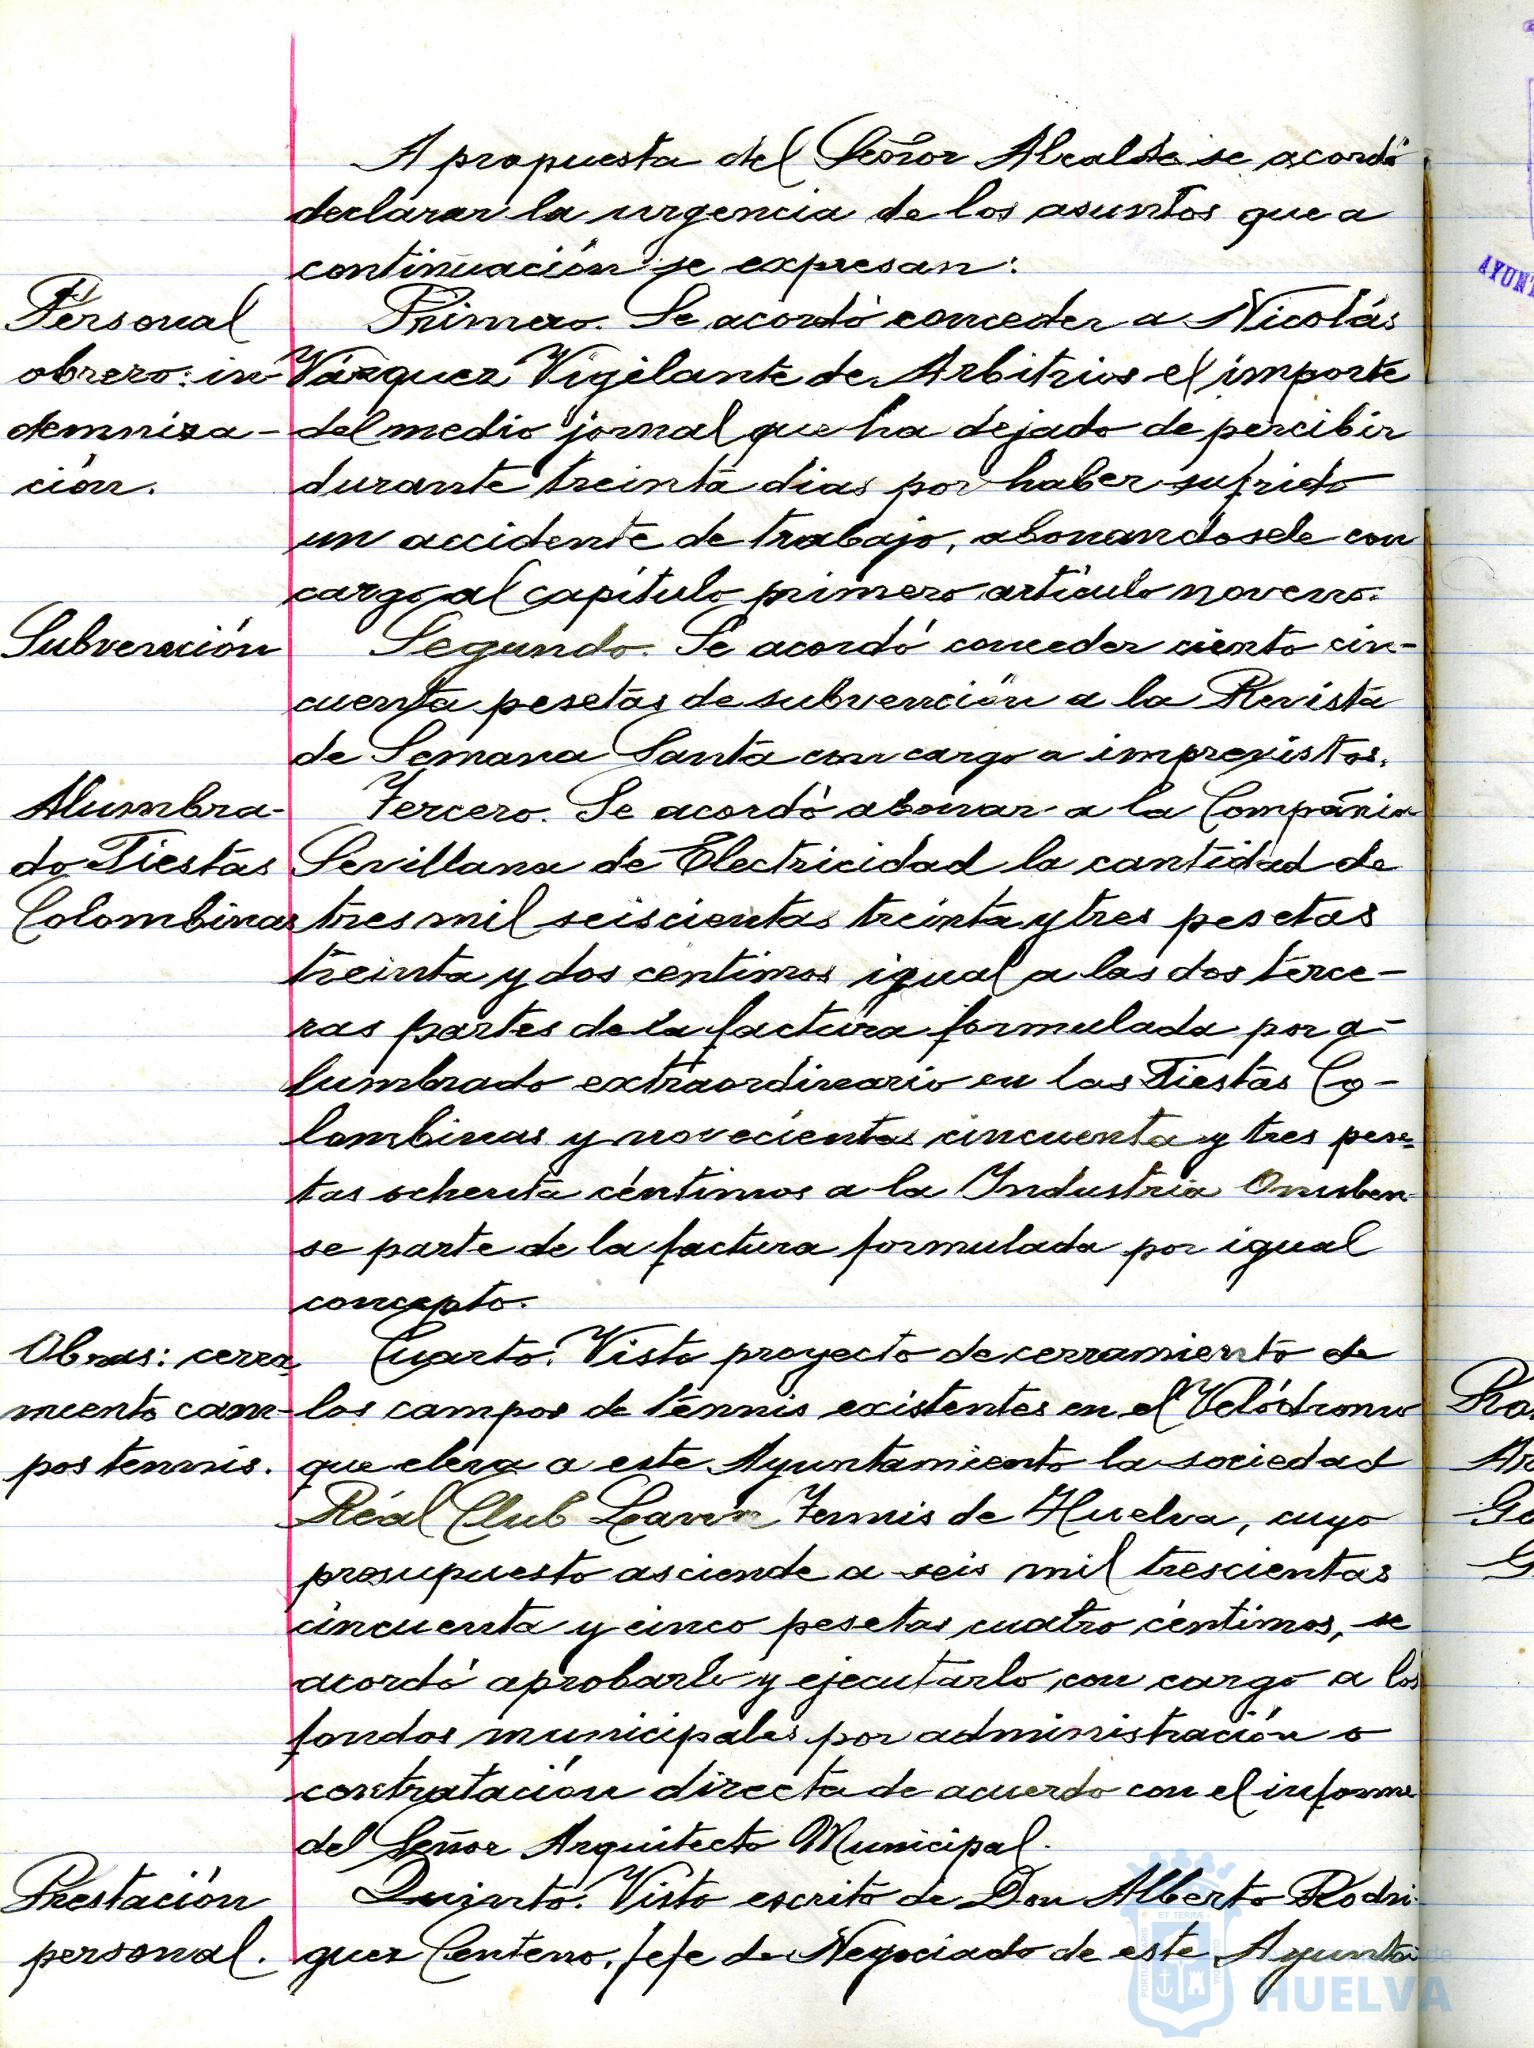 A propuesta del Señor Alcalde se acordó
declarar la urgencia de los asuntos que a
continuación se expresan:
Personal
obrero: in
demniza-
ción.
Primero. Se acordó conceder a Nicolás
Vázquez Vigilante de Arbitrios el importe
del medio jornal que ha dejado de percibir
durante treinta dias por haber sufrido
un accidente de trabajo, abonandosele con
cargo al capítulo primero artículo noveno.
Subvención
Segundo. Se acordó conceder ciento cin-
cuenta pesetas de subvención a la Revista
de Semana Santa con cargo a imprevistos.
Alumbra-
do Fiestas
Colombinas
Tercero. Se acordó abonar a la Compañia
Sevillana de Electricidad la cantidad de
tres mil seiscientas treinta y tres pesetas
treinta y dos centimos igual a las dos terce-
ras partes de la factura formulada por a-
lumbrado extraordinario en las Fiestas Co-
lombinas y novecientas cincuenta y tres pese-
tas ochenta céntimos a la Industria Onuben-
se parte de la factura formulada por igual
concepto.
Obras: cerra
miento cam-
pos tennis.
Cuarto. Visto proyecto de cerramiento de
los campos de tennis existentes en el Velódromo
que eleva a este Ayuntamiento la sociedad
Real Club Lawn Tennis de Huelva, cuyo
presupuesto asciende a seis mil trescientas
cincuenta y cinco pesetas cuatro céntimos, se
acordó aprobarlo y ejecutarlo con cargo a los
fondos municipales por administración o
contratación directa de acuerdo con el informe
del Señor Arquitecto Municipal.
Prestación
personal.
Quinto. Visto escrito de Don Alberto Rodri-
guez Centeno, Jefe de Negociado de este Ayunta
AYUNT
HUELVA